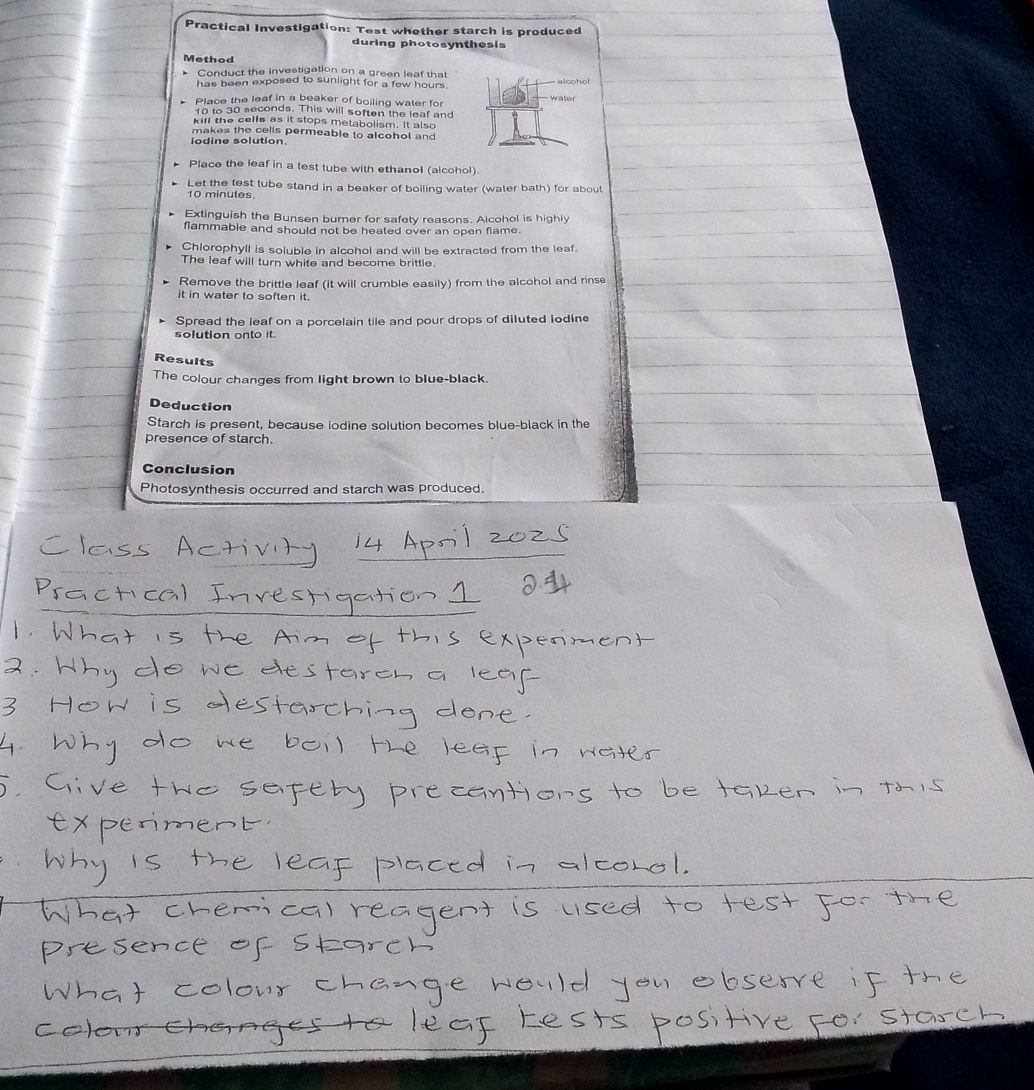 Practical Investigation: Test whether starch is produced
during photosynthesis
Method
► Conduct the investigation on a green leaf that
has been exposed to sunlight for a few hours.
alcohol
water
► Place the leaf in a beaker of boiling water for
10 to 30 seconds. This will soften the leaf and
kill the cells as it stops metabolism. It also
makes the cells permeable to alcohol and
iodine solution.
► Place the leaf in a test tube with ethanol (alcohol).
► Let the test tube stand in a beaker of boiling water (water bath) for about
10 minutes.
► Extinguish the Bunsen burner for safety reasons. Alcohol is highly
flammable and should not be heated over an open flame.
► Chlorophyll is soluble in alcohol and will be extracted from the leaf.
The leaf will turn white and become brittle.
► Remove the brittle leaf (it will crumble easily) from the alcohol and rinse
it in water to soften it.
► Spread the leaf on a porcelain tile and pour drops of diluted iodine
solution onto it.
Results
The colour changes from light brown to blue-black.
Deduction
Starch is present, because iodine solution becomes blue-black in the
presence of starch.
Conclusion
Photosynthesis occurred and starch was produced.
Class Activity 14 April 2025
Practical Investigation 1
1. What is the Aim of this experiment
2. Why do we destarch a leaf
3 How is destarching done.
4. Why do we boil the leaf in water
5. Give two safety precantions to be taken in this
experiment.
Why is the leaf placed in alcohol.
What chemical reagent is used to test for the
presence of starch
What colour change would you observe if the
colour changes to leaf tests positive for starch